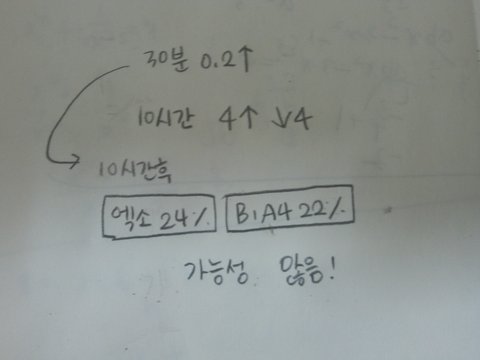 30분 0.2↑
10시간 4↑ ↓4
10시간후
엑소 24% B1A4 22%
가능성 많음!